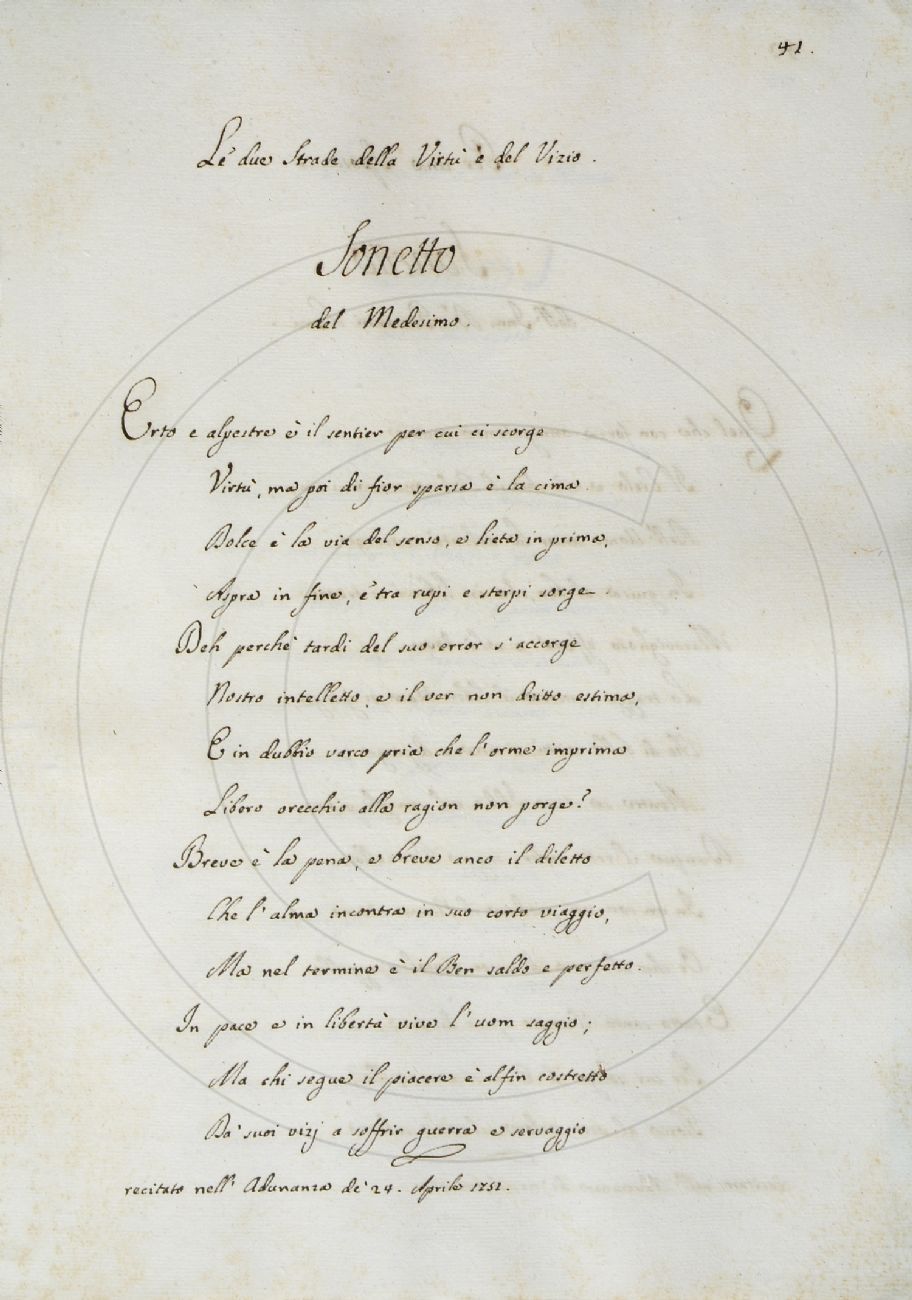 41.
Le due Strade della Virtù e del Vizio.
Sonetto
del Medesimo.
Erto e alpestre è il sentier per cui ci scorge
Virtù, ma poi di fior sparsa è la cima.
Dolce è la via del senso, e lieta in prima,
Aspra in fine, e tra rupi e sterpi sorge.
Deh perchè tardi del suo error s'accorge
Nostro intelletto, e il ver non dritto estima,
E in dubbio varco pria che l'orme imprima
Libero orecchio alla ragion non porge?
Breve è la pena, e breve anco il diletto
Che l'alma incontra in suo corto viaggio,
Ma nel termine è il Ben saldo e perfetto.
In pace e in libertà vive l'uom saggio;
Ma chi segue il piacere è alfin costretto
Da' suoi vizj a soffrir guerra e servaggio
recitato nell'Adunanza de' 24. Aprile 1751.